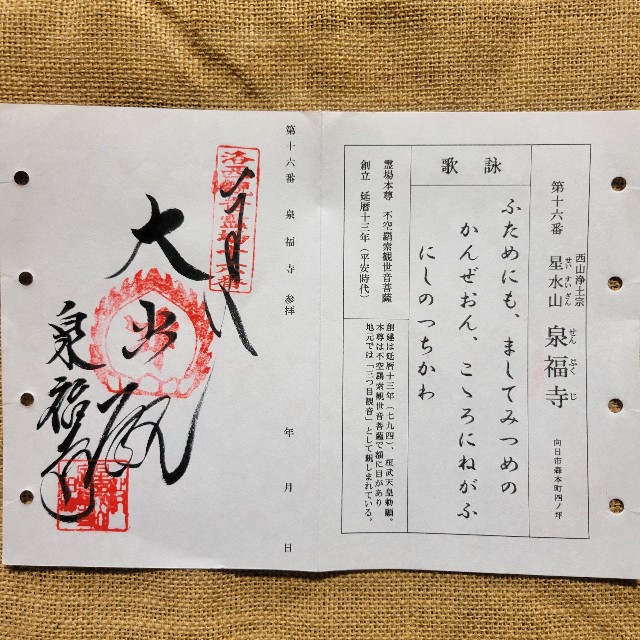 第十六番
西山浄土宗
星水山 泉福寺
せい すい ざん せん ぷく じ
向日市森本町四ノ坪
詠歌
ふためにも、ましてみつめの
かんぜおん、こゝろにねがふ
にしのつちかわ
霊場本尊 不空羂索観世音菩薩
創立 延暦十三年(平安時代)
創建は延暦十三年(七九四)、桓武天皇勅願。
本尊は不空羂索観世音菩薩で額に目があり
地元では「三つ目観音」として親しまれている。
第十六番 泉福寺 参拝
年 月 日
奉
大悲殿
泉福寺